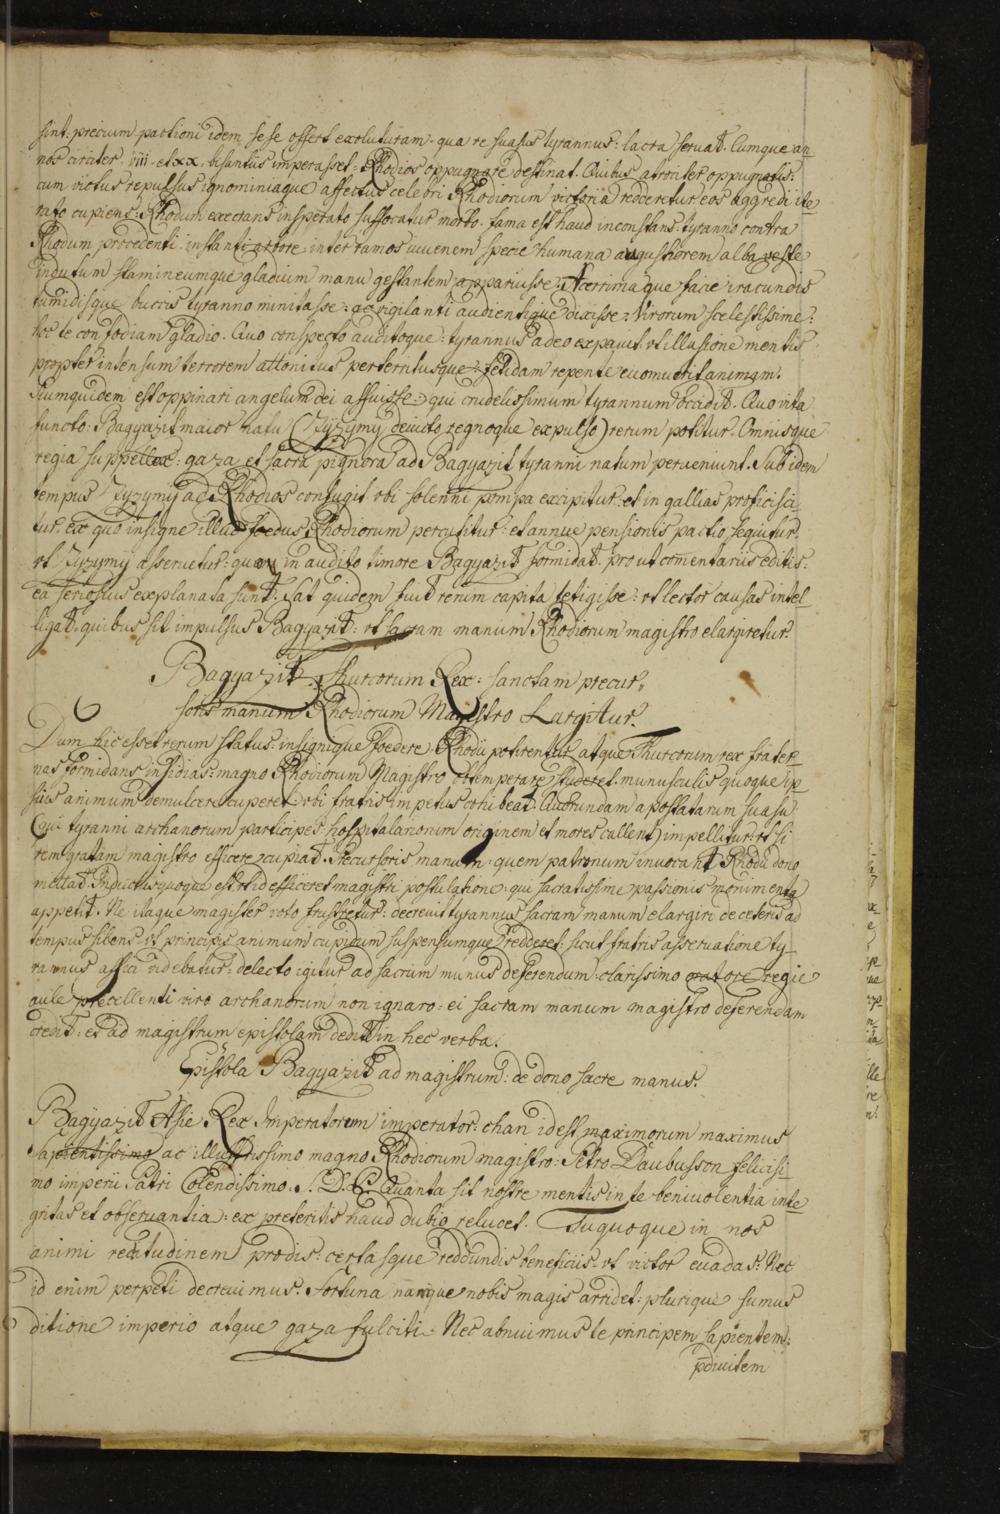 sint: precium pactioni idem sese offert exoluturam. qua re suasus tyrannus: sacra seruat. Cumque an-
nos circiter viii. et xx. bisantiis imperasset: Rhodios oppugnare destinat. Quibus atrociter oppugnatis:
cum victus repulsus ignominiaque affectus celebri Rhodiorum victoria redderetur eos aggredi ite-
rato cupiens: Rhodum execrans insperato suffocatur morbo. fama est haud inconstans: tyranno contra
Rhodum procedenti: instanti inter ramos iuuenem specie humana augustiorem alba veste
indutum stamineumque gladium manu gestantem apparuisse. Acerrimaque facie iracundis
tumidisque buccis tyranno minitasse: ac vigilanti audientique dixisse: Virorum scelestissime:
hoc te confodiam gladio. Quo conspecto auditoque: tyrannus adeo expauit vt illusione mentis
propter intensum terrorem attonitus perterritusque: fetidam repente euomuerit animam.
Piumquidem est oppinari angelum dei affuisse: qui crudelissimum tyrannum occidit. Quo vita
functo. Bagyazit maior natu (Zyzymy deuicto regnoque expulso) rerum potitur. Omnisque
regia suppellex: gaza et sacra pignora ad Bagyazit tyranni natum perueniunt. Sub idem
tempus Zyzymy ad Rhodios confugit vbi solenni pompa excipitur: et in gallias proficisci-
tur. ex quo insigne illud foedus Rhodiorum percutitur: et annue pensionis pactio sequitur.
vt Zyzymy asseruetur: quem inaudito timore Bagyazit formidat. prout comentariis editis:
ea seriosius explanata sunt. Sat quidem fuit rerum capita tetigisse: vt lector causas intel-
ligat: quibus sit impulsus Bagyazit: vt sacram manum Rhodiorum magistro elargiretur.
Bagyazit Thurcorum Rex: sanctam precur,,
soris manum Rhodiorum Magistro Largitur.
Dum hic esset rerum status: insignique foedere Rhodii potirentur atque Thurcorum rex frater-
nas formidans insidias: magno Rhodiorum Magistro obtemperare studeret. munusculis quoque ip-
sius animum demulcere cuperet vbi fratris impetus cohibeat. Quorundam apostatarum suasu
(qui tyranni archanorum participes hospitalariorum originem et mores callent) impellitur: vt si
rem gratam magistro efficere cupiat. Precursoris manum quem patronum inuocant Rhodii dono
mittat. Inductusquoque est vt id efficeret magistri postulatione: qui sacratissime passionis monimenta
appetit. Ne itaque magister voto frustretur: decreuit tyrannus sacram manum elargiri de ceteris ad
tempus silens. vt principis animum cupidum suspensumque redderet: sicut fratris asseruatione ty-
rannus affici videbatur: delecto igitur ad sacrum munus deferendum clarissimo oratore regie
aule precellenti viro archanorum non ignaro: ei sacram manum magistro deferendam
credit: et ad magistrum epistolam dedit in hec verba.
Epistola Bagyazit ad magistrum: de dono sacre manus.
Bagyazit Asie Rex Imperatorum imperator: chan id est maximorum maximus
Sapientissimo ac illustrissimo magno Rhodiorum magistro: Petro Daubusson felicissi-
mo imperii Patri Colendissimo. S. D. Quanta sit nostre mentis in te beniuolentia inte-
gritas et obseruantia: ex preteritis haud dubio relucet. Tu quoque in nos
animi rectitudinem prodis: certasque reddundis beneficiis: vt victor euadas. Nec
id enim perpeti decreuimus. Fortuna namque nobis magis arridet: plurique sumus
ditione imperio atque gaza fulciti. Nec abnuimus te principem sapientem: